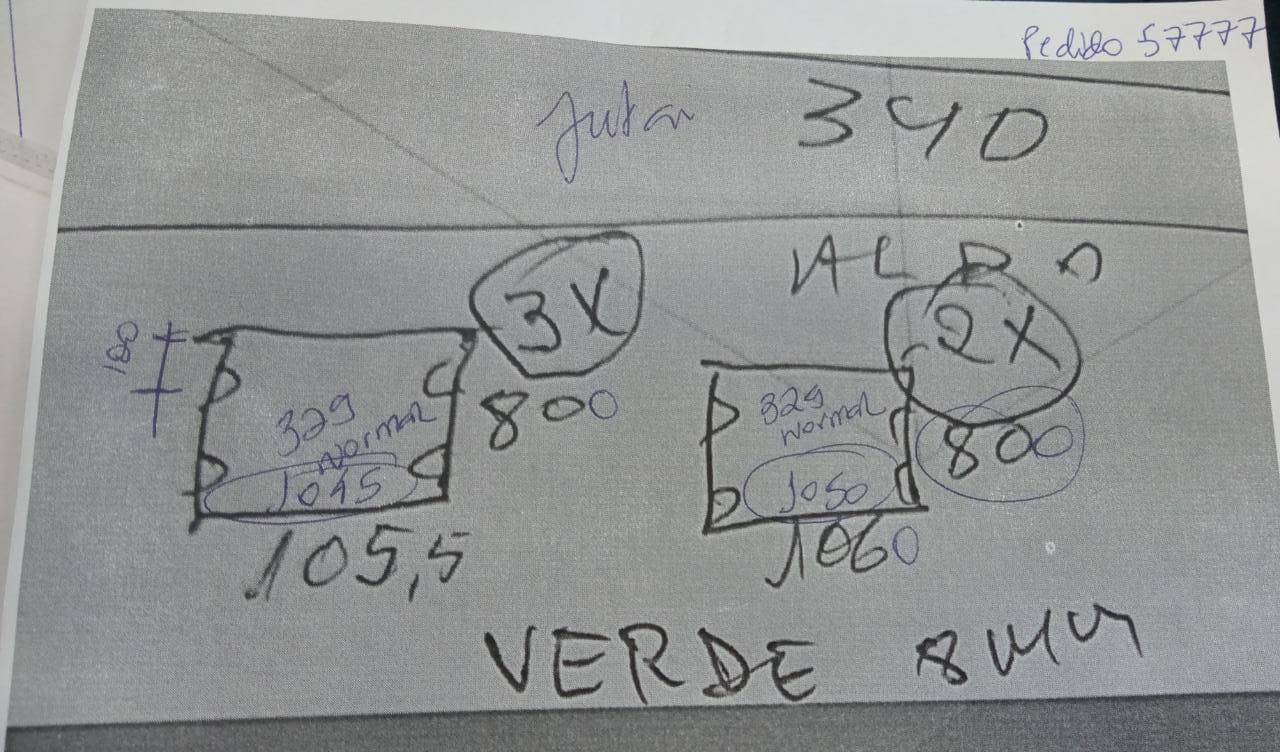 Pedido 57777
340
3X
2X
100
800
329
Normal
1045
105,5
329
Normal
1050
800
1060
VERDE 8MM